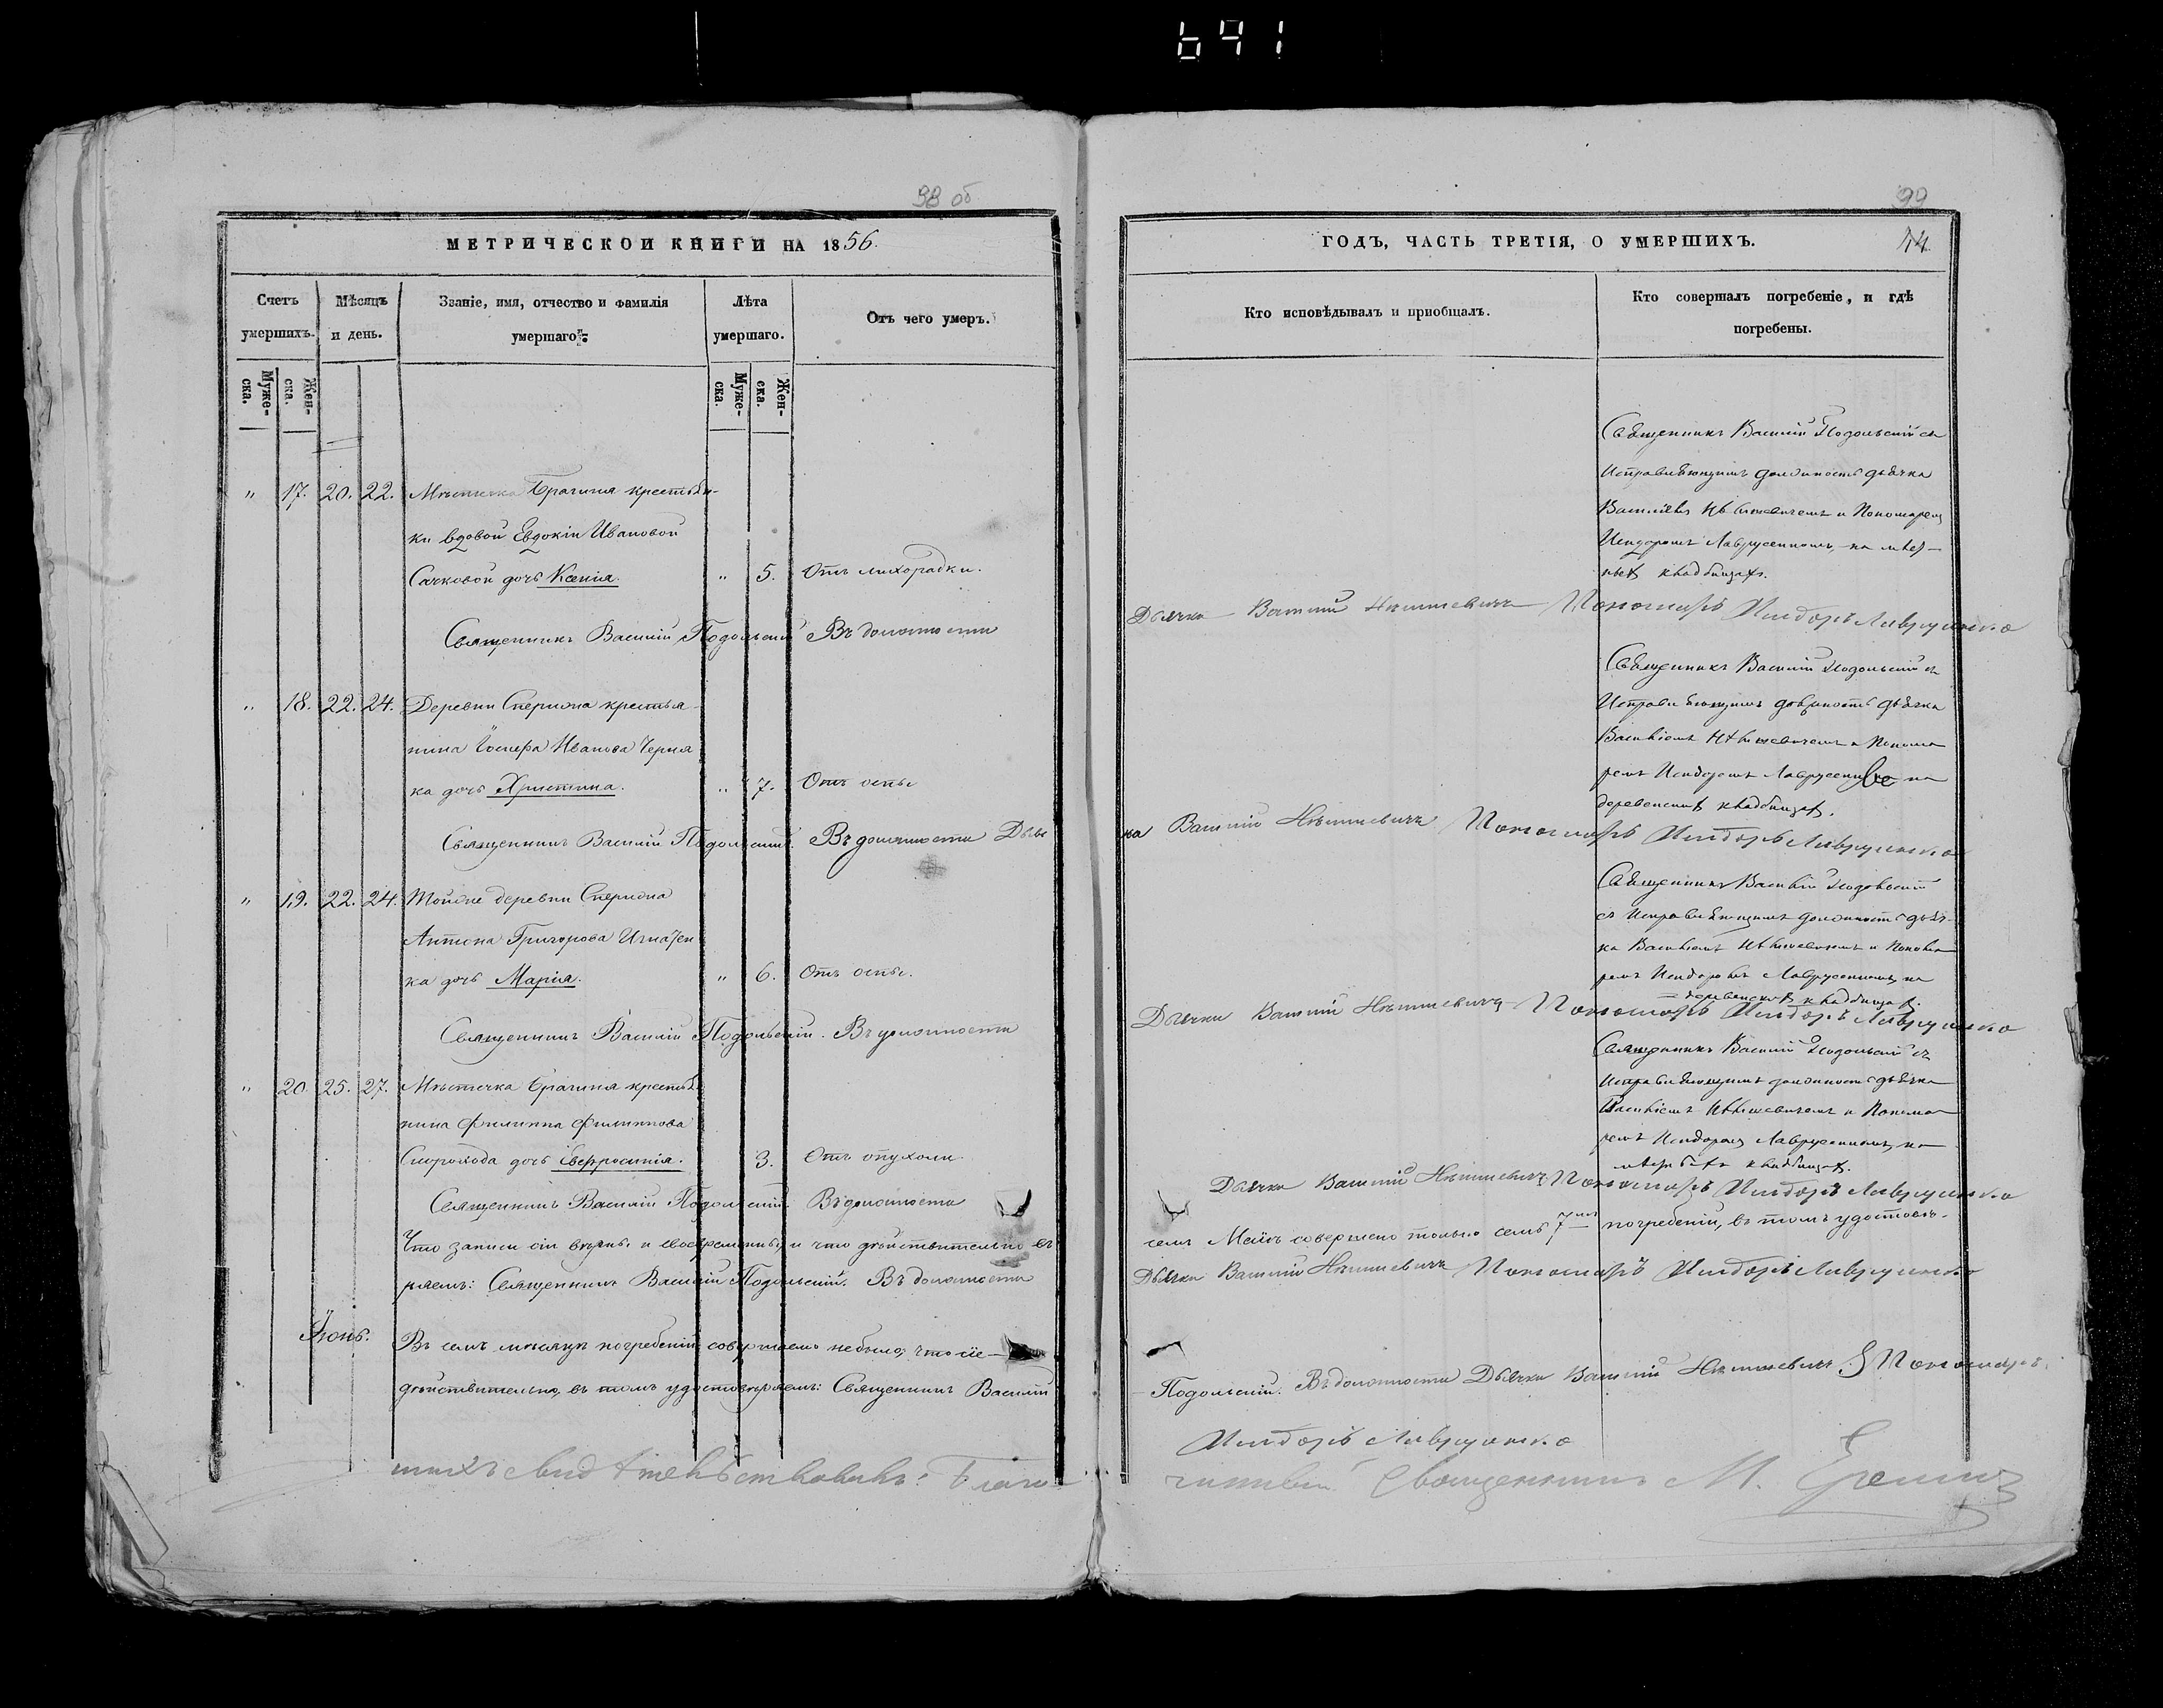 641
98 об
МЕТРИЧЕСКОЙ КНИГИ НА 1856.
Счетъ умершихъ.
Муже-ска.
Жен-ска.
Мѣсяцъ и день.
Званіе, имя, отчество и фамилія умершаго.
Лѣта умершаго.
Муже-ска.
Жен-ска.
Отъ чего умеръ.
" 17. 20. 22. Мѣстечка Брагиня крестьян-
ки вдовой Евдокіи Ивановой
Сачковой дочь Ксенія. " 5. Отъ лихорадки.
Священникъ Василій Подольскій Въ должности
" 18. 22. 24. Деревни Сперижа крестья-
нина Іосифа Иванова Черня
ка дочь Христина. " 7. Отъ оспы
Священникъ Василій Подольскій. Въ должности Дьяч
" 19. 22. 24. Тойже деревни Сперижа
Антона Григорова Игнатен
ка дочь Марія. " 6. Отъ оспы.
Священникъ Василій Подольскій. Въ должности
" 20 25. 27. Мѣстечка Брагиня крестья
нина Филиппа Филиппова
Скорохода дочь Евфросинія. 3. Отъ опухоли.
Священникъ Василій Подольскій. Въ должности
Что записи сіи вѣрны и своевременны, и что дѣйствительно въ
ряемъ: Священникъ Василій Подольскій. Въ должности
Іюнь.
Въ семъ мѣсяцѣ погребеній совершаемо не было, что сіе
дѣйствительно, въ томъ удостовѣряемъ: Священникъ Василій
свидѣтельствовалъ: Благо-
99
ГОДЪ, ЧАСТЬ ТРЕТІЯ, О УМЕРШИХЪ.
Кто исповѣдывалъ и пріобщалъ.
Кто совершалъ погребеніе, и гдѣ погребены.
Священникъ Василій Подольскій съ
Исправляющимъ должность дьячка
и Пономаремъ
Исидоромъ Лаврусенкомъ, на
кладбищахъ.
Дьячка Василій Пономарь Исидоръ Лаврусенко
Священникъ Василій Подольскій съ
Исправляющимъ должность дьячка
Василіемъ и Понома
ремъ Исидоромъ на
деревенскихъ кладбищахъ.
ка Василій Пономарь Исидоръ Лаврусенко
Священникъ Василій Подольскій
съ Исправляющимъ должность дьяч-
ка Василіемъ и Понома
ремъ Исидоромъ Лаврусенкомъ, на
деревенскихъ кладбищахъ.
Дьячка Василій Пономарь Исидоръ Лаврусенко
Священникъ Василій Подольскій съ
Исправляющимъ должность дьячка
Василіемъ и Понома
ремъ Исидоромъ Лаврусенкомъ, на
кладбищахъ.
Дьячка Василій Пономарь Исидоръ Лаврусенко
семъ Маѣ совершено только семь 7 погребеній, въ томъ удостовѣ-
Дьячка Василій Пономарь Исидоръ Лаврусенко
Подольскій. Въ должности Дьячка Василій Пономарь
Исидоръ Лаврусенко
чинный Священникъ М.